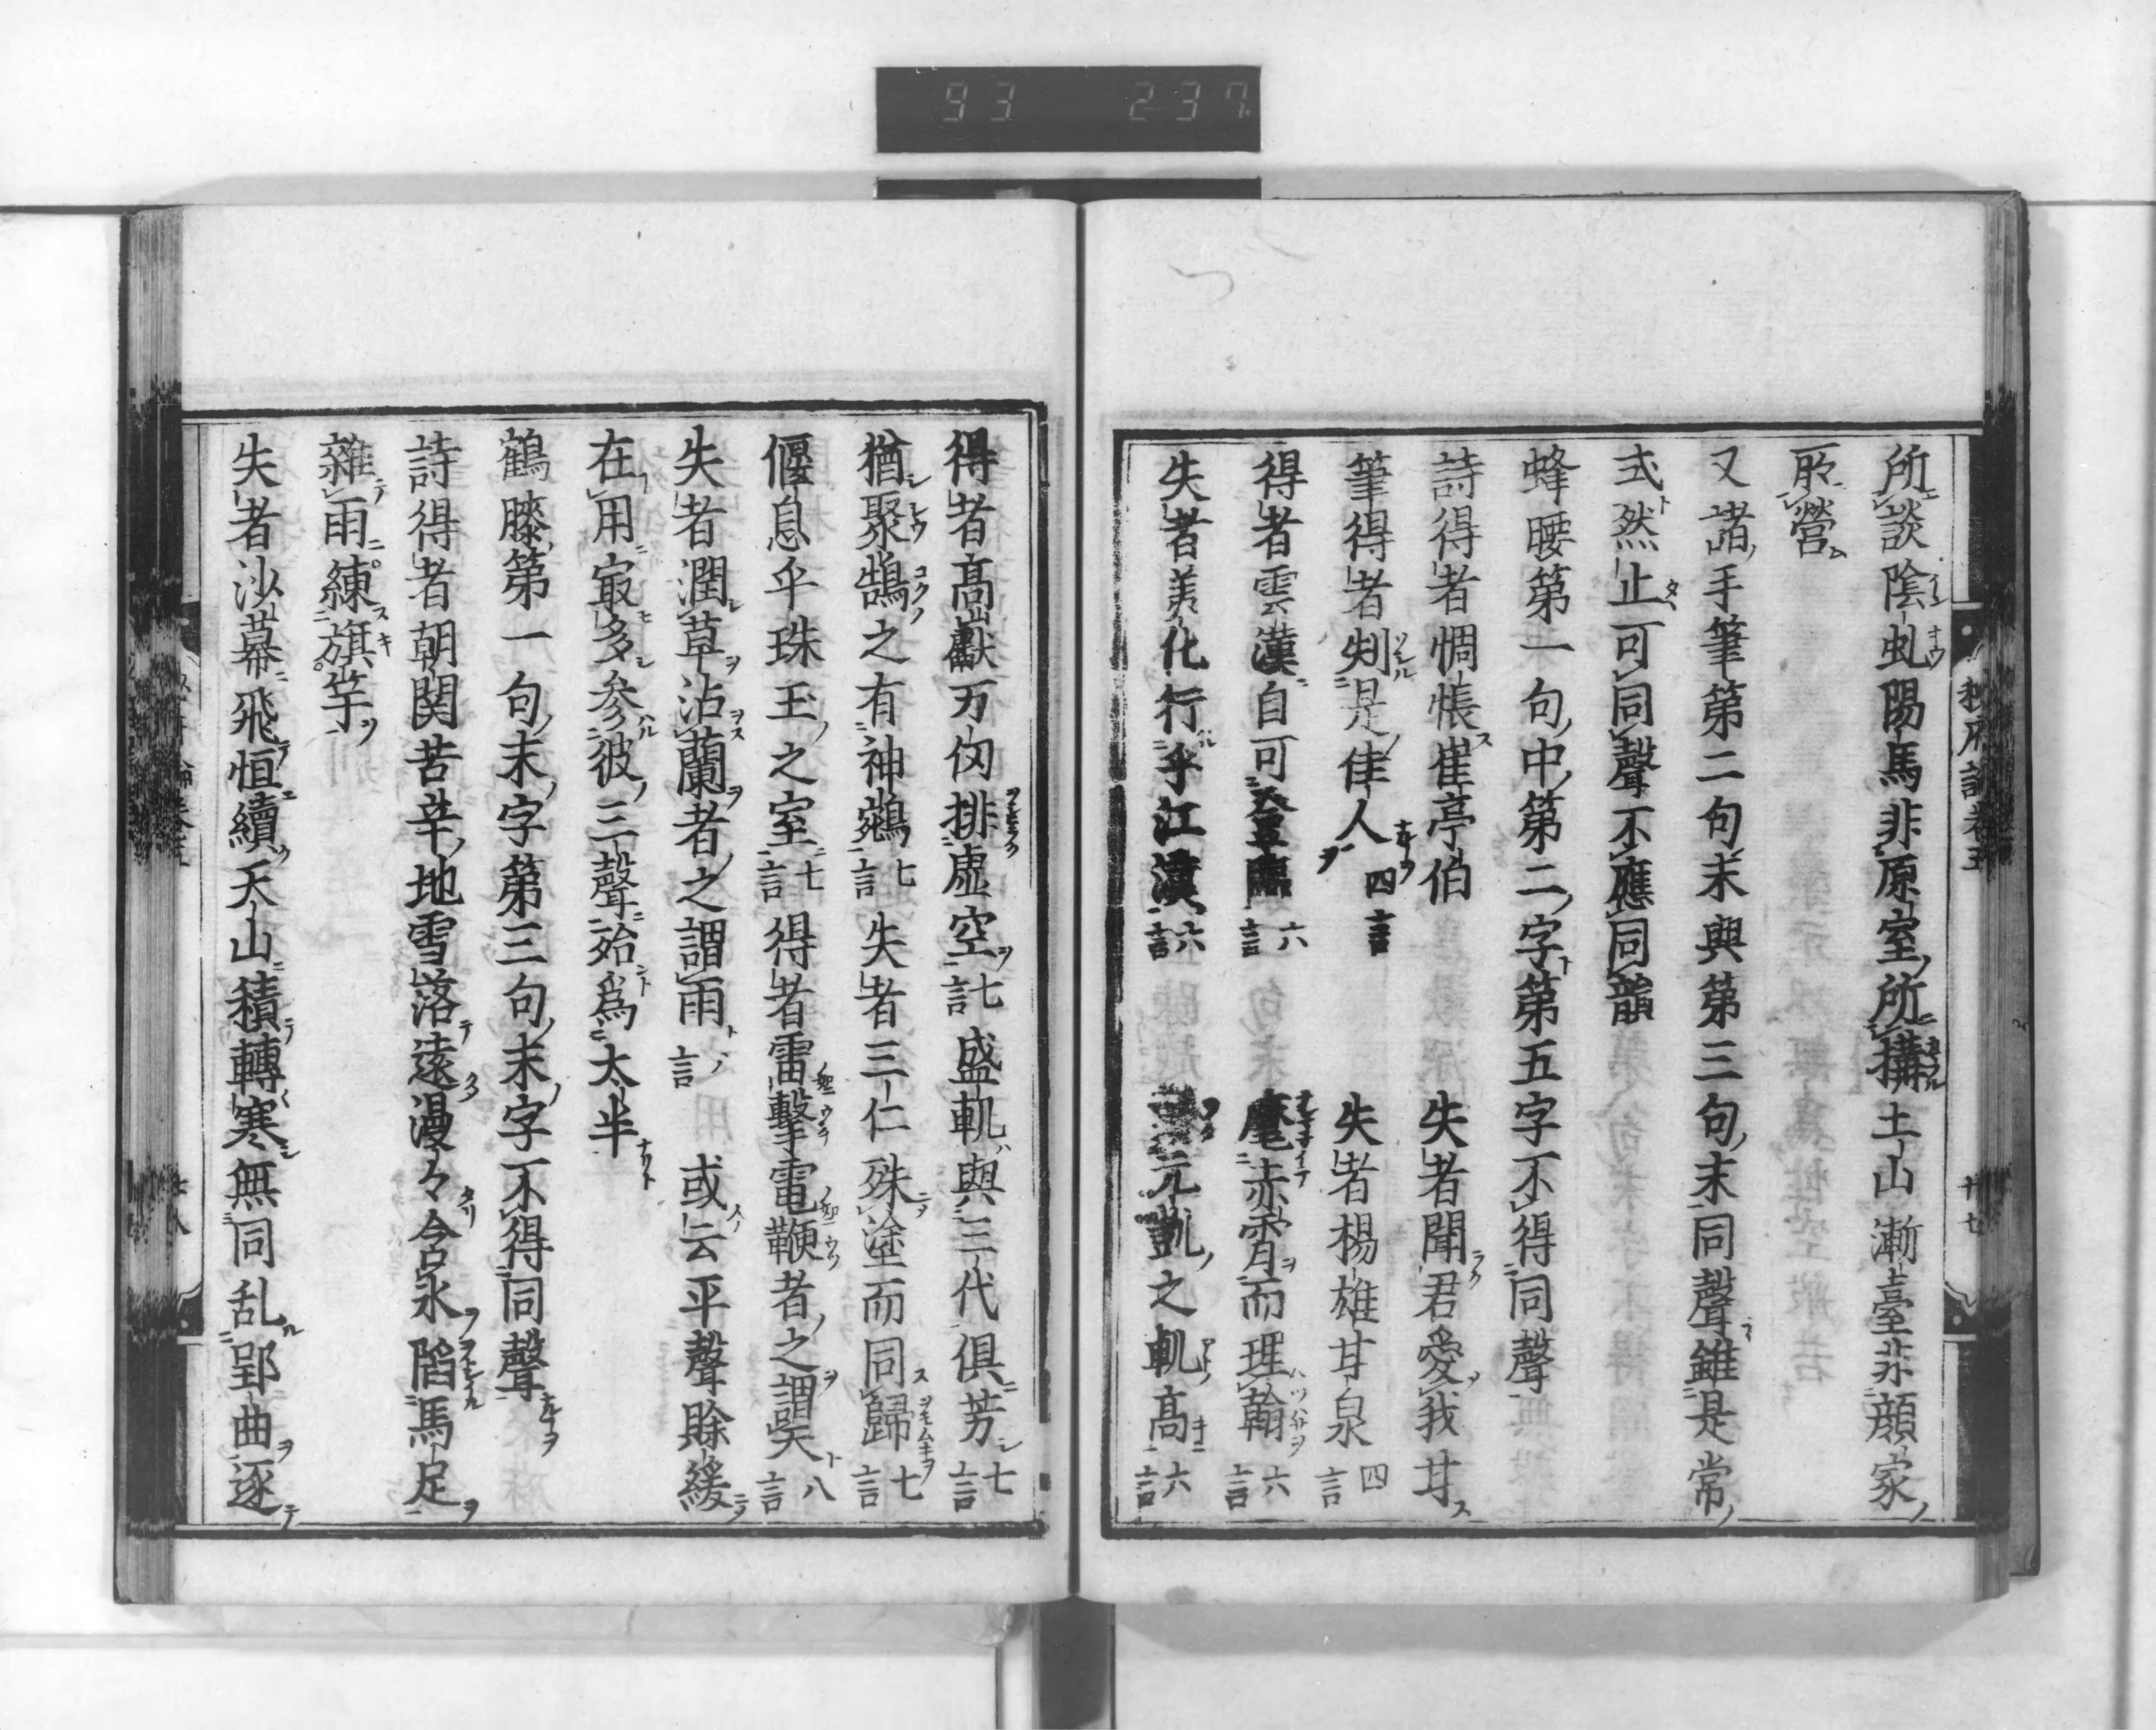 93 237
所談陰虬陽馬非原室所搆土山漸臺非顔家
所營
又諸手筆第二句末與第三句末同聲雖是常
式然止可同聲不應同韻
蜂腰第一句中第二字第五字不得同聲
詩得者惆悵崔亭伯 失者聞君愛我甘
筆得者刺是佳人四言 失者楊雄甘泉四言
得者雲漢自可登臨六言 麾赤霄而理翰六言
失者美化行乎江漢六言 元凱之軌高六言
得者高巘万仭排虚空七言盛軌與三代俱芳七言
猶聚鵠之有神鵷七言失者三仁殊塗而同歸七言
偃息乎珠玉之室七言得者雷擊電鞭者之謂天八言
失者潤草沾蘭者之謂雨言 或云平聲賖緩
在用寂多参彼三聲殆爲太半
鶴膝第一句末字第三句末字不得同聲
詩得者朝関苦辛地雪落遠漫々含氷陷馬足
雜雨練旗竿
失者沙幕飛恒續天山積轉寒無同乱郢曲逐